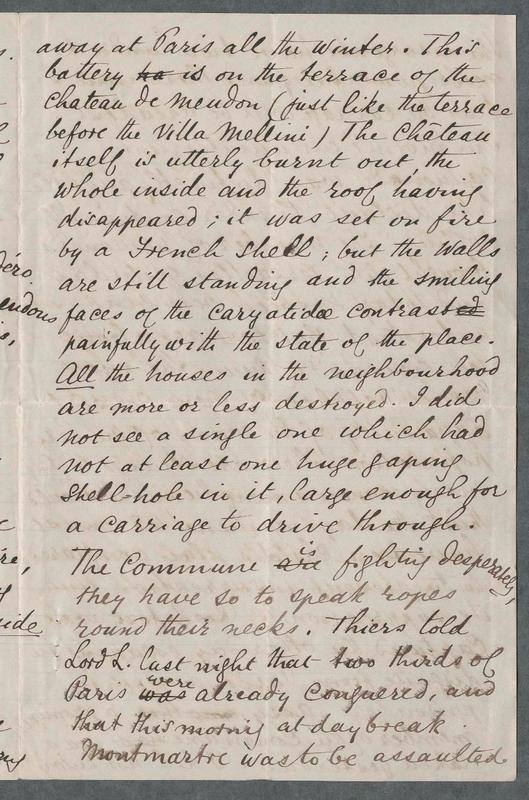 away at Paris all the winter. This
battery ha is on the terrace of the
chateau de Meudon (just like the terrace
before the Villa Mellini) The Château
itself is utterly burnt out, the
whole inside and the roof having
disappeared; it was set on fire
by a French shell; but the walls
are still standing and the smiling
faces of the caryatidæ contrasted
painfully with the state of the place.
All the houses in the neighbourhood
are more or less destroyed. I did
not see a single one which had
not at least one huge gaping
shell-hole in it, large enough for
a carriage to drive through.
is
The Commune are fighting desperately,
they have so to speak ropes
round their necks. Thiers told
Lord L. last night that two thirds of
were
Paris was already conquered, and
that this morning at daybreak
Montmartre was to be assaulted